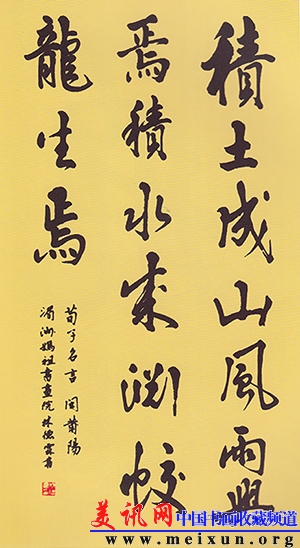 積土成山風雨興
焉積水成淵蛟
龍生焉
荀子名言 闽莆陽
湄洲媽祖書畫院林德霖書
美讯网 中国书画收藏频道
www.meixun.org